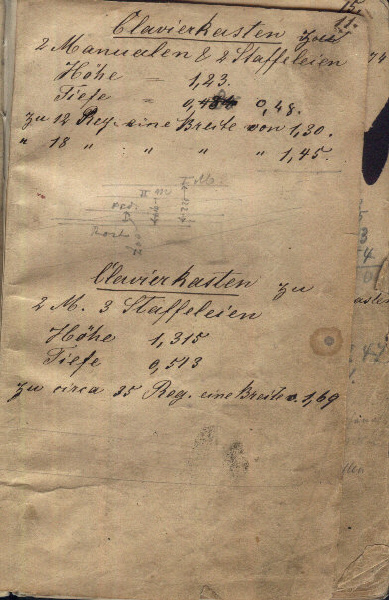 15.
11.
Clavierkasten zu
2 Manualen & 2 Staffeleien
Höhe = 1,23.
Tiefe = 0,48.
zu 12 Reg. eine Breite von 1,30.
" 18 " " " " 1,45.
I M.
II M.
Ped.
Clavierkasten zu
2 M. 3 Staffeleien
Höhe 1,315
Tiefe 0,513
zu circa 35 Reg. eine Breite v. 1,69
74